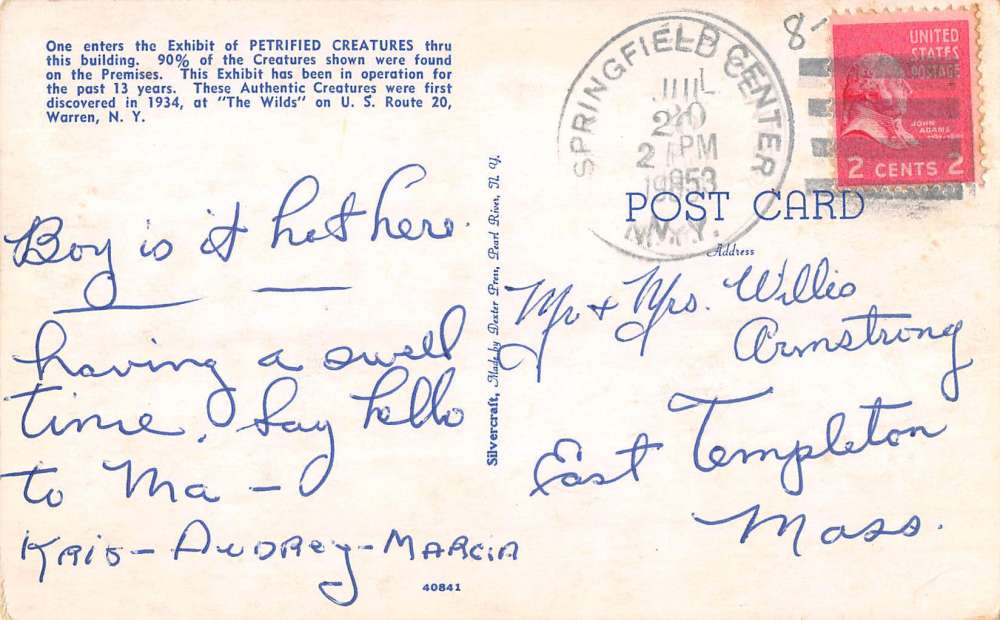 One enters the Exhibit of PETRIFIED CREATURES thru
this building. 90% of the Creatures shown were found
on the Premises. This Exhibit has been in operation for
the past 13 years. These Authentic Creatures were first
discovered in 1934, at "The Wilds" on U. S. Route 20,
Warren, N. Y.
Boy is it hot here.
having a swell
time. Say hello
to Ma -
Kris - Audrey - Marcia
40841
Silvercraft, Made by Dexter Press, Pearl River, N. Y.
SPRINGFIELD CENTER
JUL
20
2 PM
1953
N.Y.
8-
UNITED
STATES
POSTAGE
JOHN
ADAMS
2 CENTS 2
POST CARD
Address
Mr + Mrs. Willis
Armstrong
East Templeton
Mass.